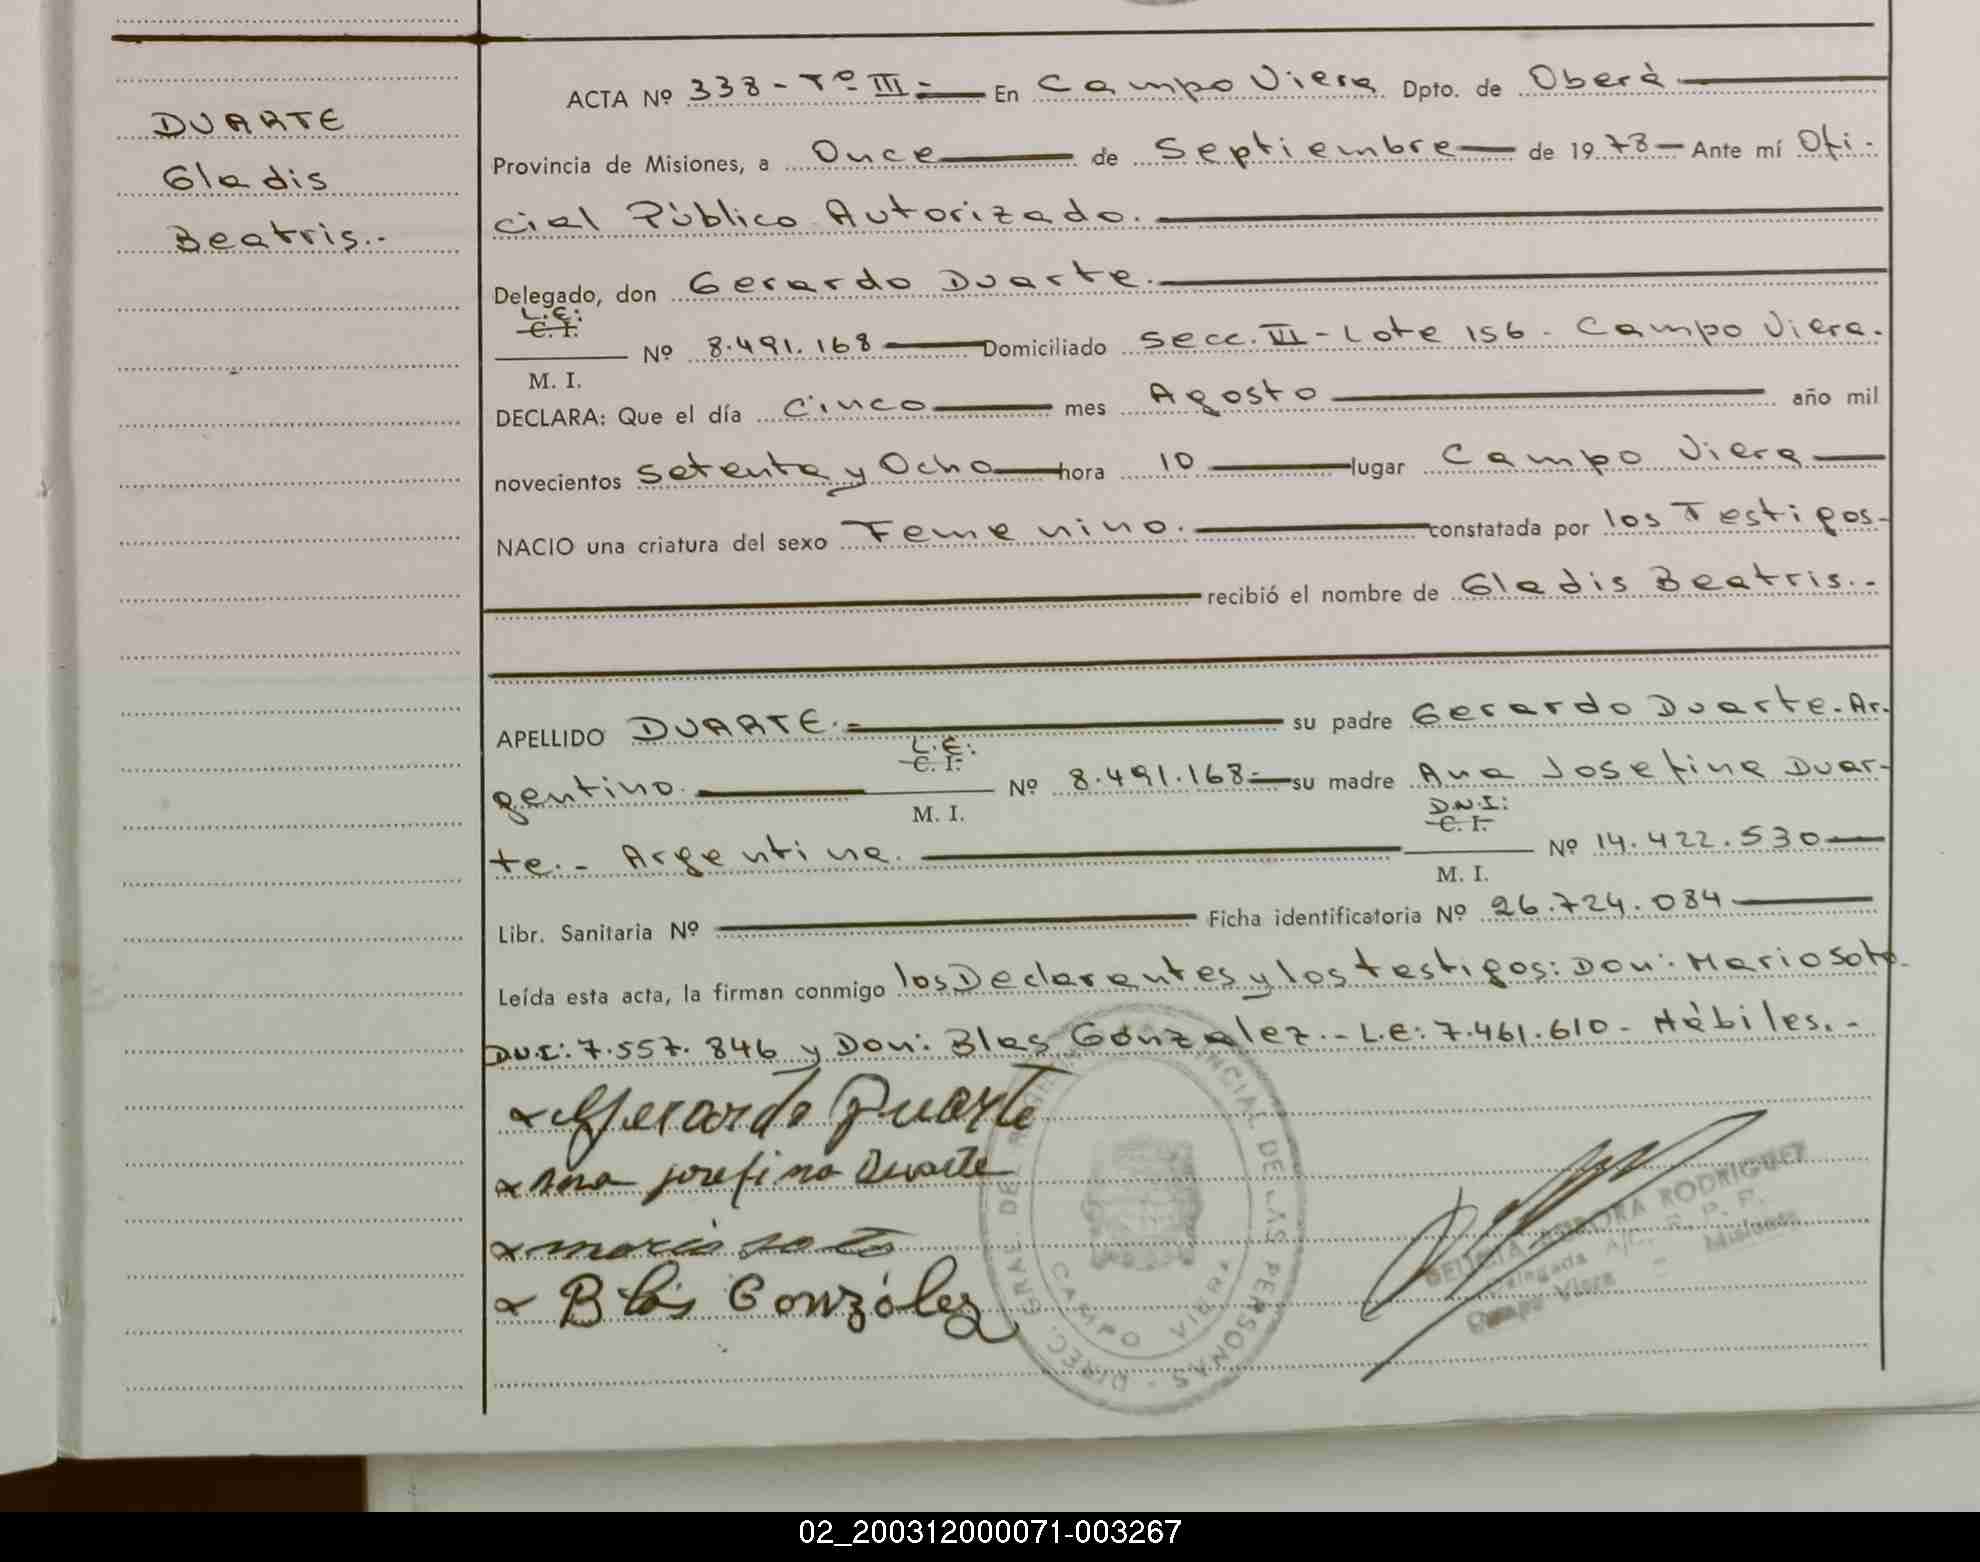 DUARTE
Gladis
Beatris.-
ACTA Nº 338 - Tº III - En Campo Viera Dpto. de Oberá
Provincia de Misiones, a Once de Septiembre de 1978 Ante mí Ofi-
cial Público Autorizado.
Delegado, don Gerardo Duarte.
L.E:
C. I.
M. I.
Nº 8.491.168 Domiciliado Secc. III - Lote 156 - Campo Viera.
DECLARA: Que el día cinco mes Agosto año mil
novecientos setenta y Ocho hora 10 lugar Campo Viera
NACIO una criatura del sexo Femenino. constatada por los Testigos-
recibió el nombre de Gladis Beatris.-
APELLIDO DUARTE.- su padre Gerardo Duarte. Ar-
L.E:
C. I.
gentino. Nº 8.491.168- su madre Ana Josefina Duar-
M. I.
D.N.I:
C. I.
te.- Argentina. Nº 14.422.530
M. I.
Libr. Sanitaria Nº Ficha identificatoria Nº 26.724.084
Leída esta acta, la firman conmigo los Declarantes y los testigos: Don: Mario Soto-
D.N.I: 7.557.846 y Don: Blas Gonzalez.- L.E: 7.461.610 - Hábiles.-
Gerardo Duarte
Ana Josefina Duarte
Mario Soto
Blás González
DIREC. GRAL. DEL PROVINCIAL DE LAS PERSONAS
CAMPO VIERA
AURORA RODRIGUEZ
Delegada A/C. R. P. P.
Campo Viera - Misiones
02_200312000071-003267